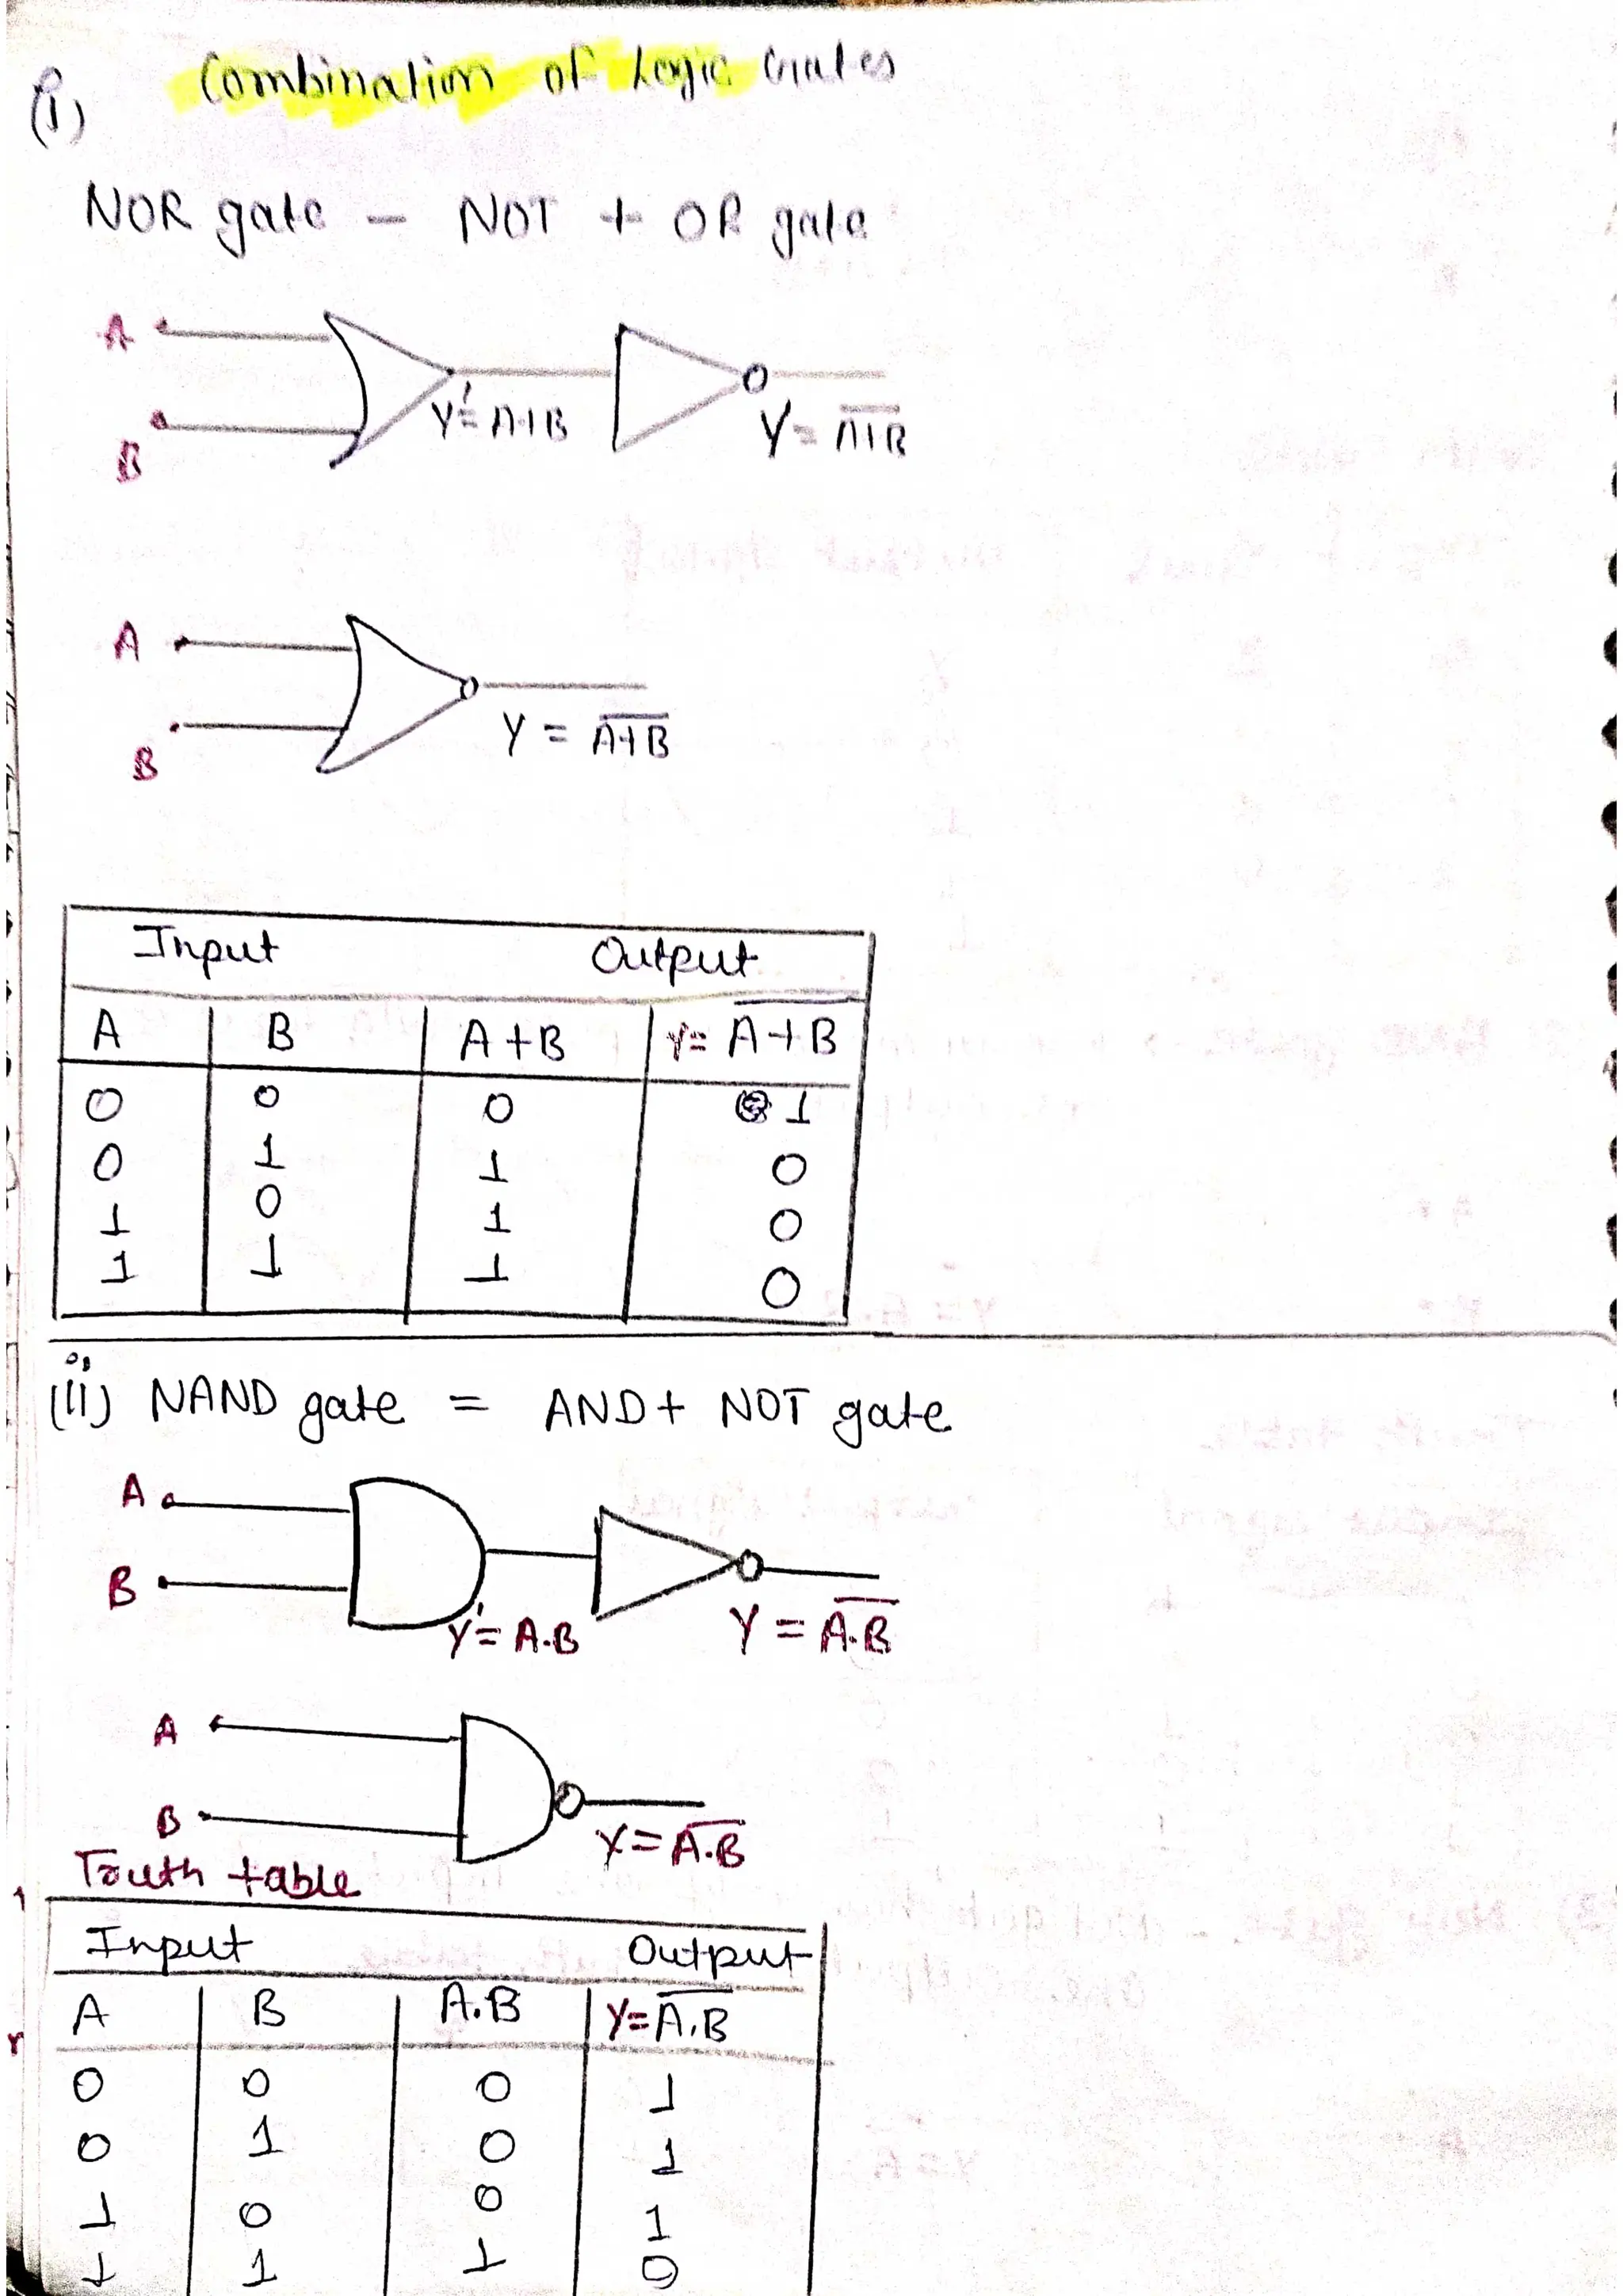 Combination of Logic Gates
(i)
NOR gate - NOT + OR gate
A
B
Y' = A+B
Y = A̅+̅B̅
A
B
Y = A̅+̅B̅
Input Output
A B A+B Y= A̅+̅B̅
0 0 0 1
0 1 1 0
1 0 1 0
1 1 1 0
(ii) NAND gate = AND + NOT gate
A
B
Y' = A.B
Y = A̅.̅B̅
A
B
Y = A̅.̅B̅
Truth table
Input Output
A B A.B Y= A̅.̅B̅
0 0 0 1
0 1 0 1
1 0 0 1
1 1 1 0